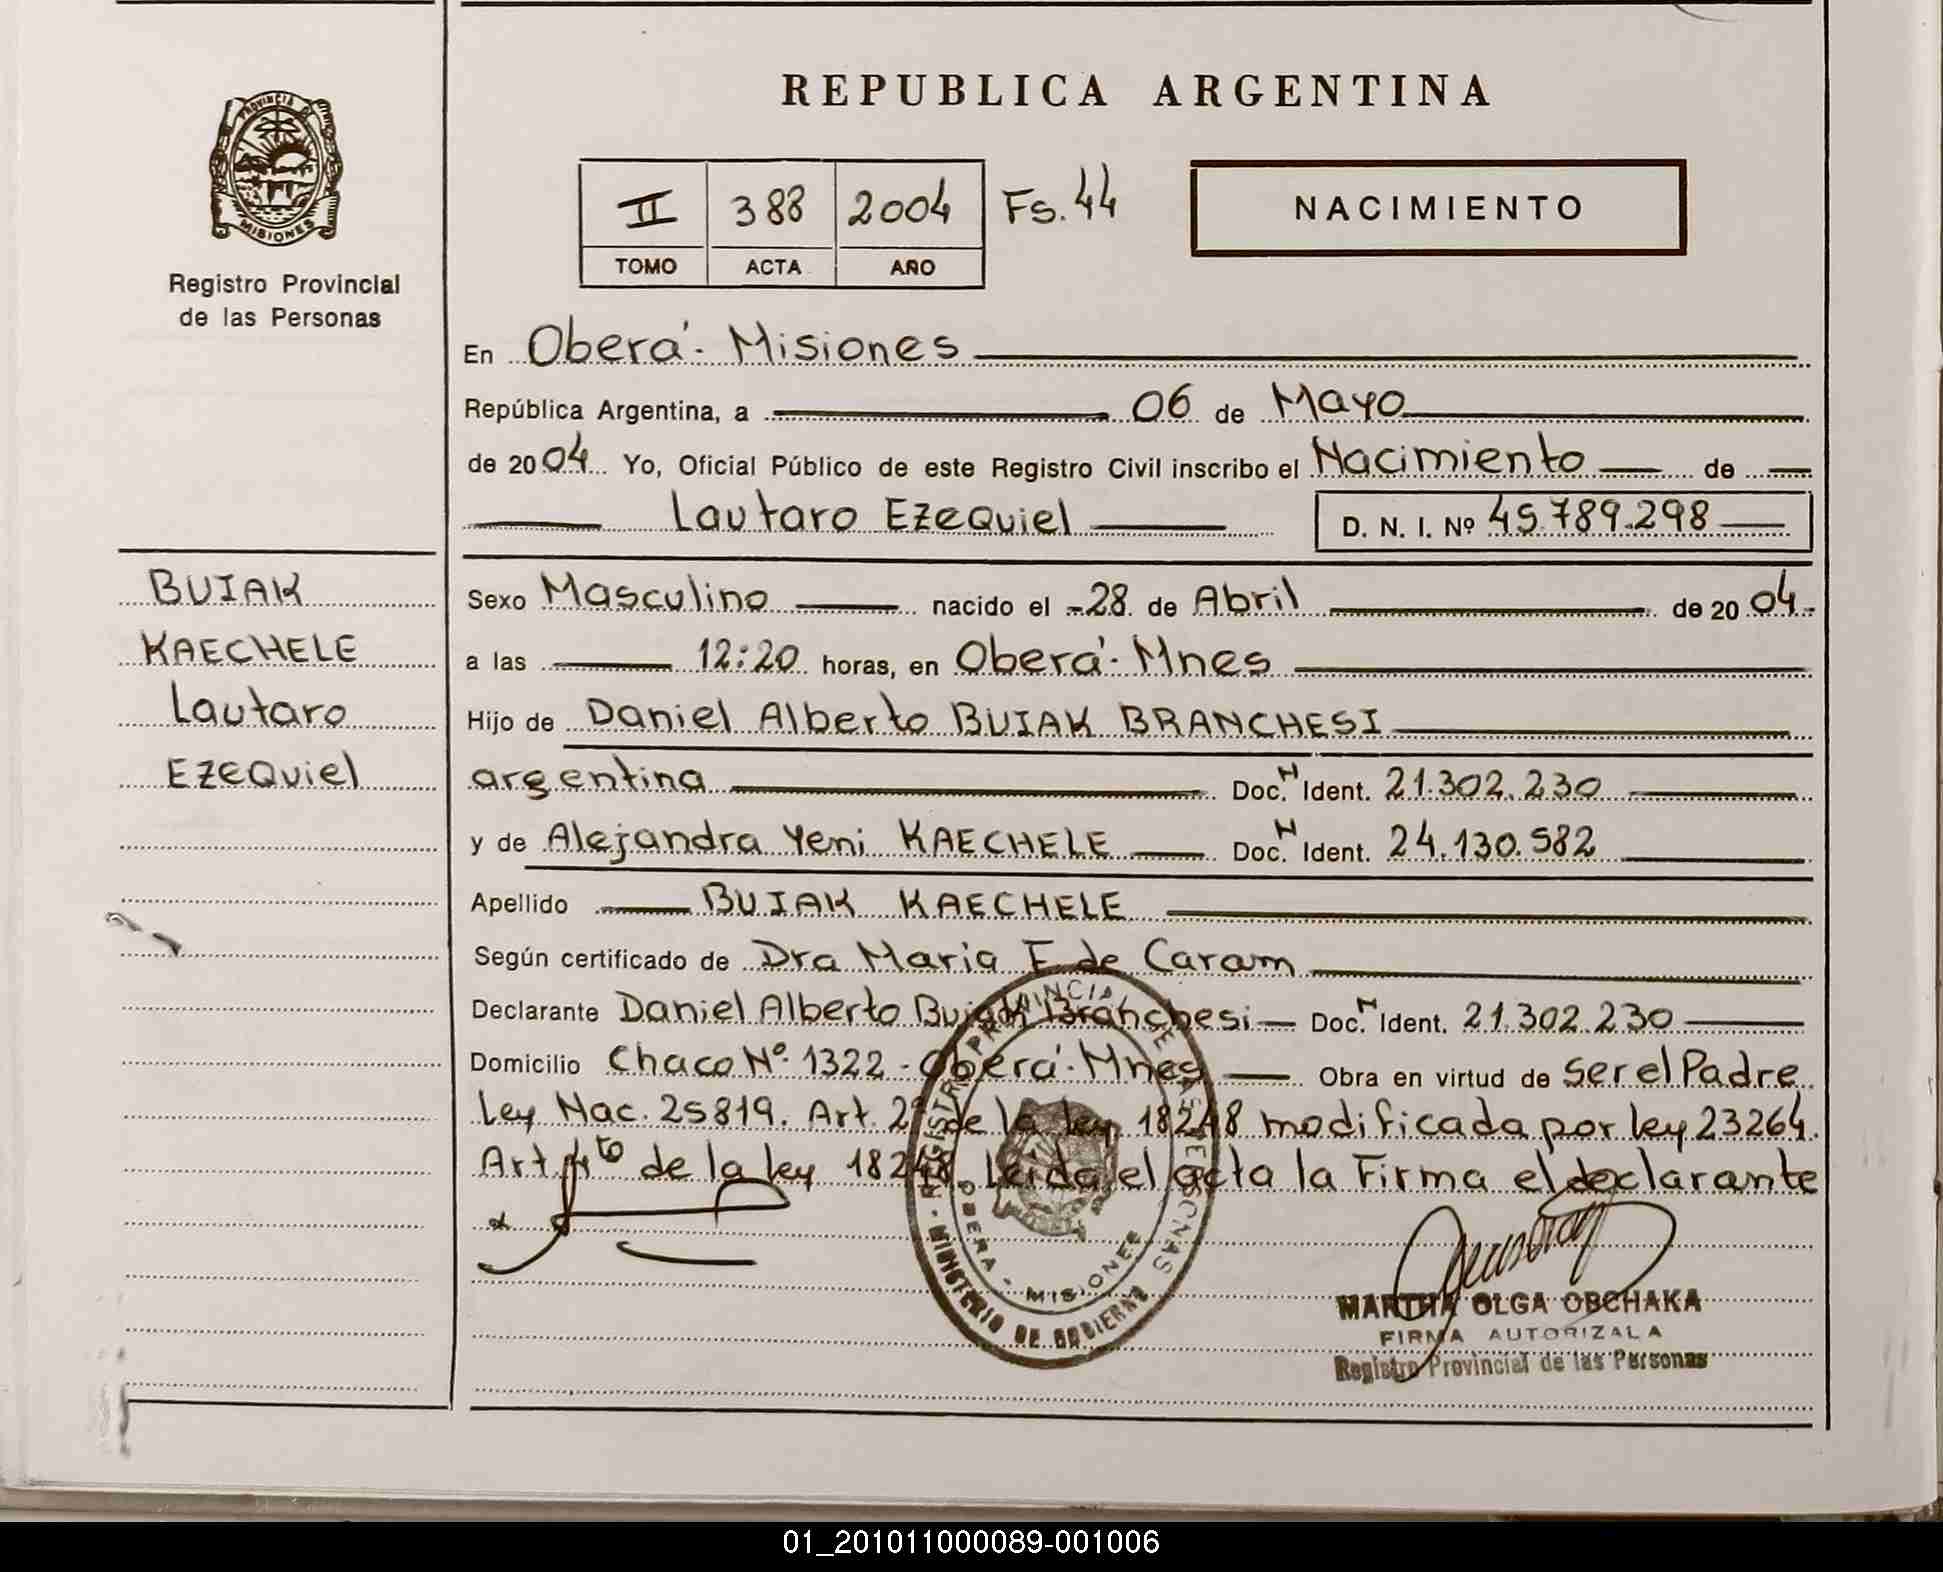 REPUBLICA ARGENTINA
PROVINCIA DE MISIONES
Registro Provincial
de las Personas
II 388 2004 Fs. 44
TOMO ACTA AÑO
NACIMIENTO
En Oberá - Misiones
República Argentina, a 06 de Mayo
de 2004 Yo, Oficial Público de este Registro Civil inscribo el Nacimiento de
Lautaro EZEQuiel D. N. I. Nº 45.789.298
BUIAK
KAECHELE
Lautaro
EZEQuiel
Sexo Masculino nacido el 28 de Abril de 2004
a las 12:20 horas, en Oberá - Mnes
Hijo de Daniel Alberto BUIAK BRANCHESI
argentina Doc. N Ident. 21.302.230
y de Alejandra Yeni KAECHELE Doc. N Ident. 24.130.582
Apellido BUIAK KAECHELE
Según certificado de Dra Maria F de Caram
Declarante Daniel Alberto Buiak Branchesi Doc. N Ident. 21.302.230
Domicilio Chaco Nº 1322 - Oberá - Mnes Obra en virtud de ser el Padre
Ley Nac. 25819. Art. 2º de la ley 18248 modificada por ley 23264.
Art. de la ley 18248 Leida el acta la Firma el declarante
REGISTRO PROVINCIAL DE LAS PERSONAS
OBERA - MISIONES
MINISTERIO DE GOBIERNO
MARTHA OLGA OBCHAKA
FIRMA AUTORIZADA
Registro Provincial de las Personas
01_201011000089-001006